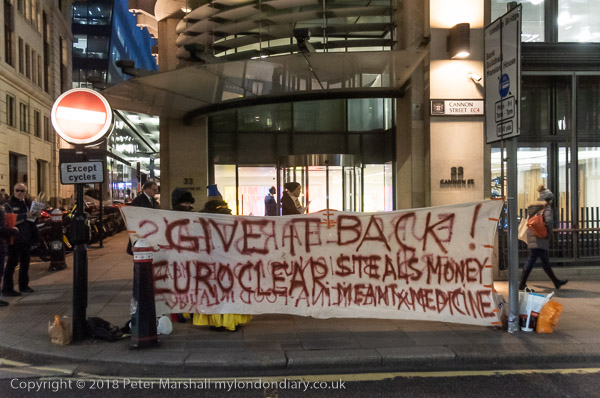 Except
cycles
CANNON
STREET EC4
33
33
CANNON ST.
GIVE IT BACK!
EUROCLEAR STEALS MONEY
MEANT 4 MEDICINE
Copyright © 2018 Peter Marshall mylondondiary.co.uk